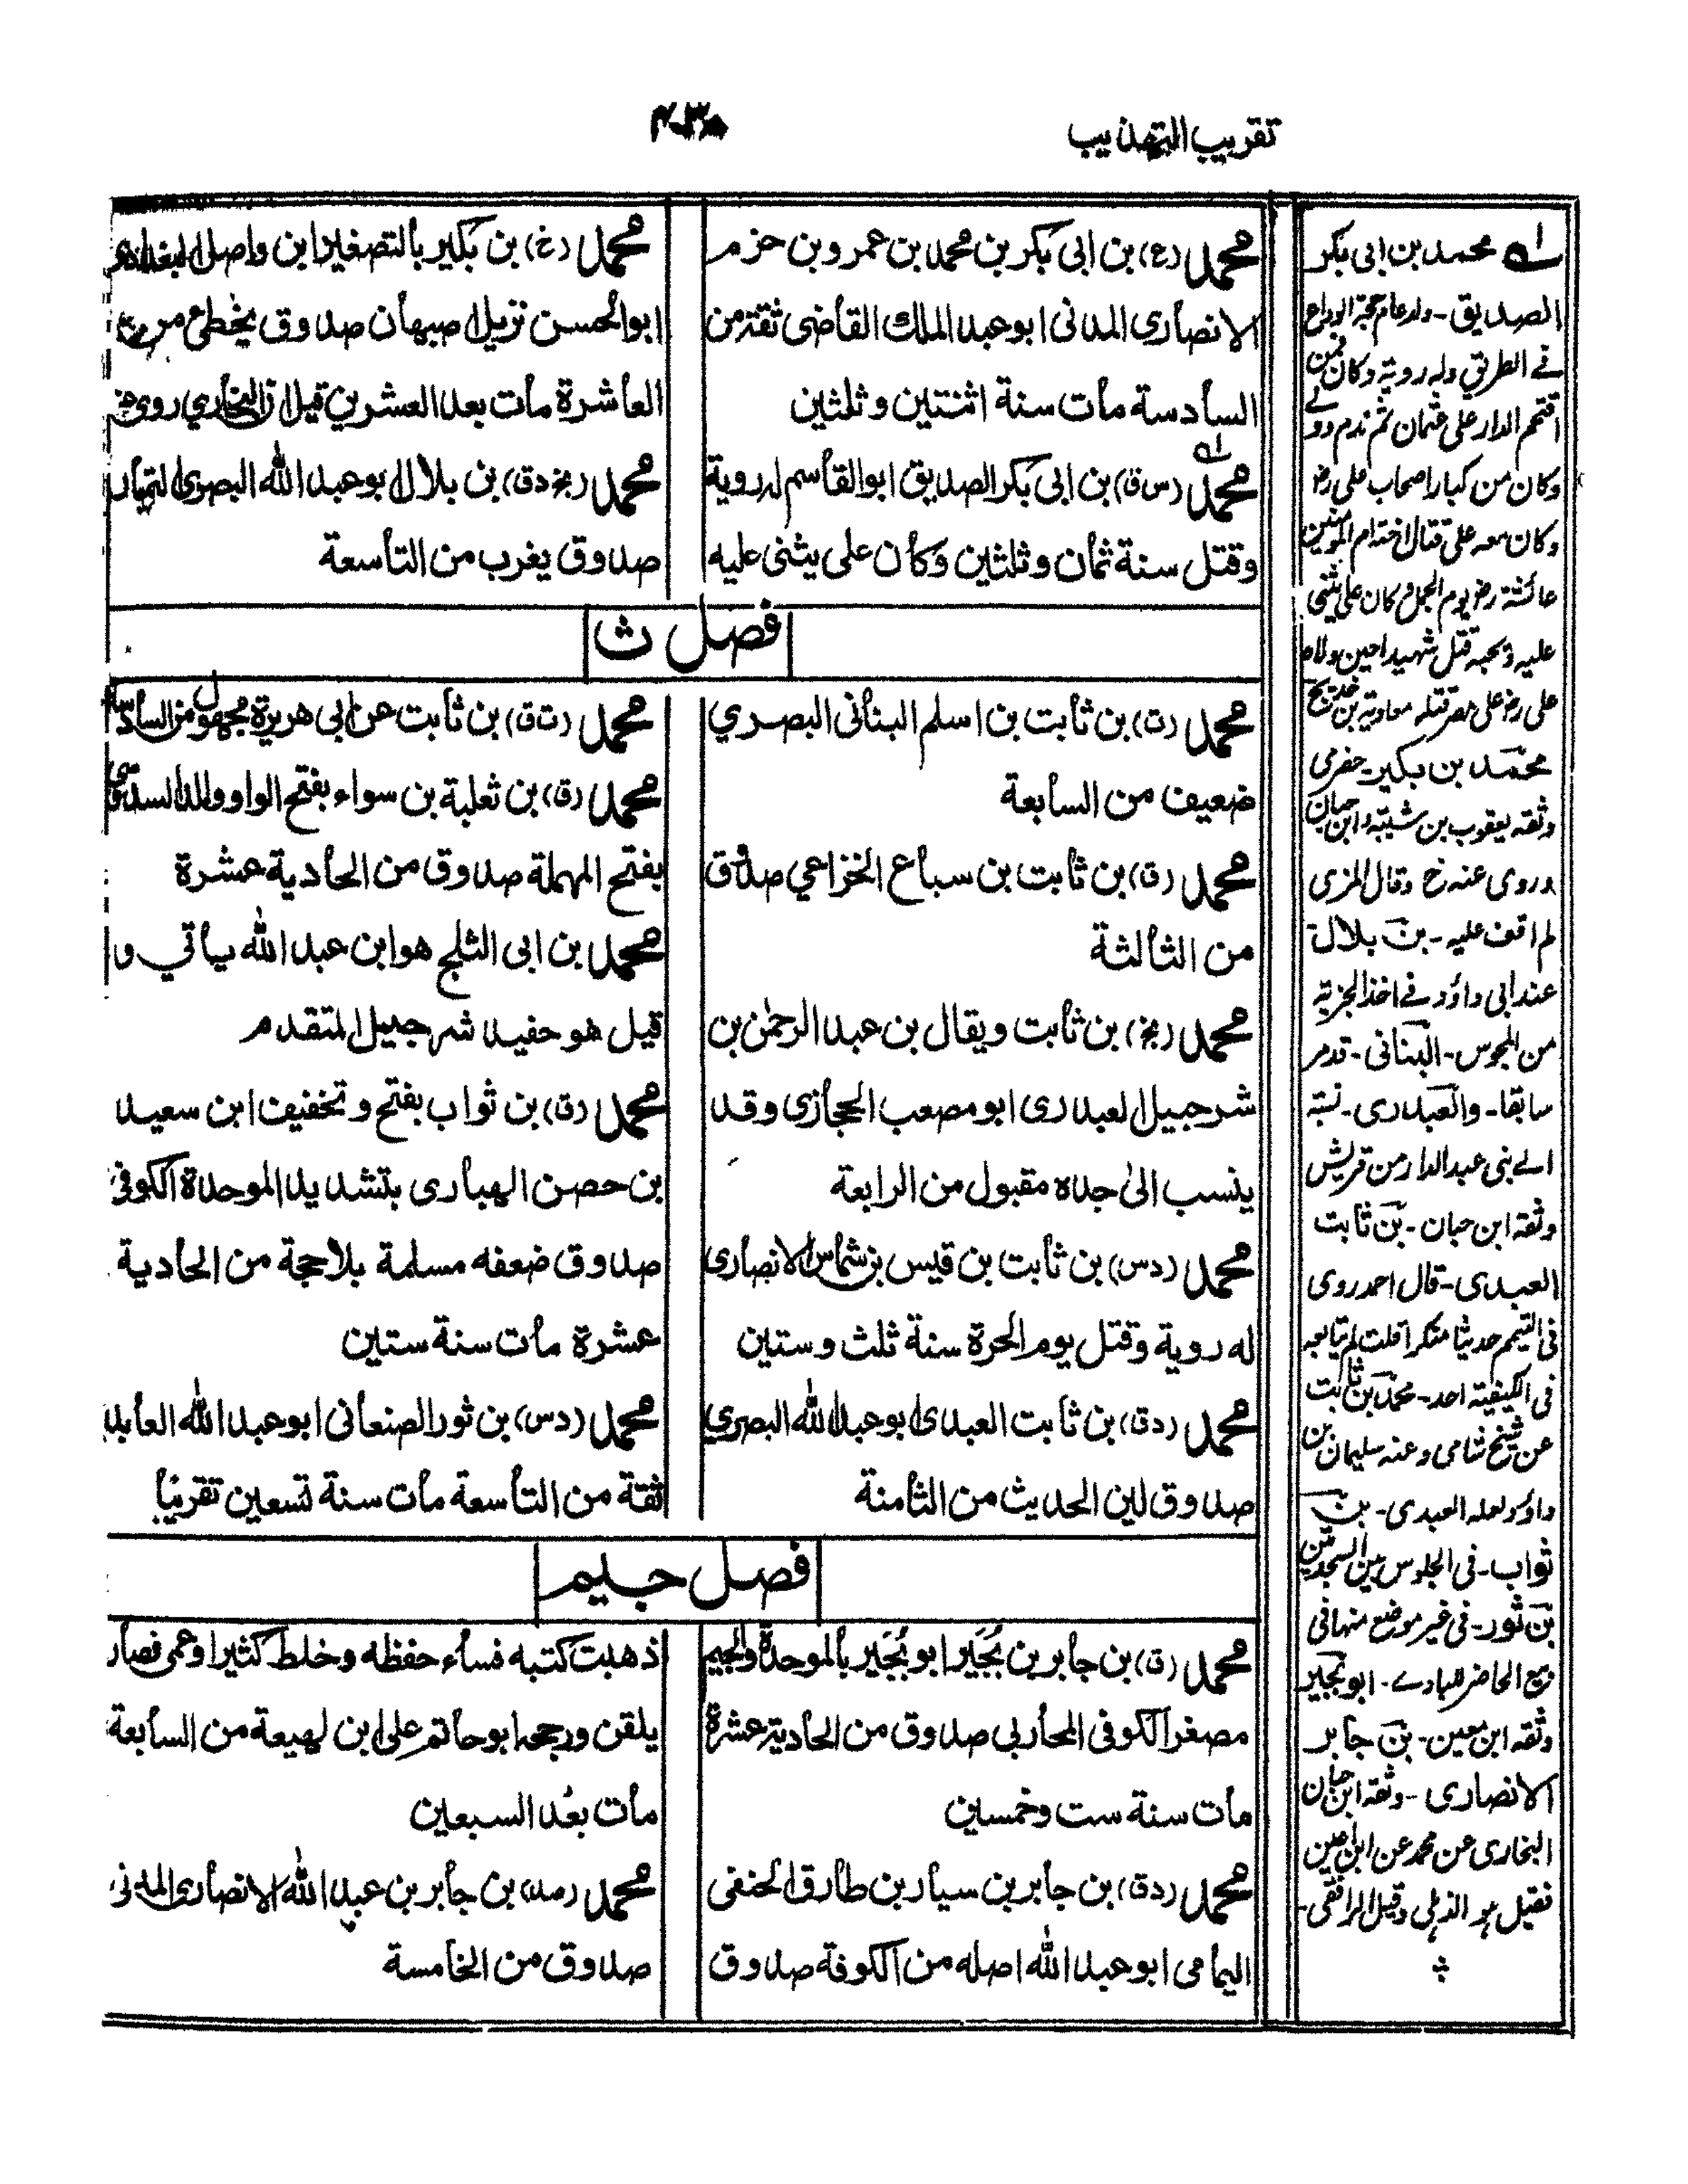 تقريب التهذيب
محمد (ع) بن ابى بكر بن محمد بن عمرو بن حزم
الانصارى المدنى ابو عبد الملك القاضى ثقة من
السادسة مات سنة اثنتين وثلثين
محمد (س ق) بن ابى بكر الصديق ابو القاسم له روية
وقتل سنة ثمان وثلثين وكان على يثنى عليه
محمد (خ) بن بكير بالتصغير ابن واصل البغدادى
ابو الحسن نزيل اصبهان صدوق يخطئ من
العاشرة مات بعد العشرين قيل ان البخاري روى عنه
محمد (بخ د ق) بن بلال ابو عبد الله البصرى التمار
صدوق يغرب من التاسعة
فصل ث
محمد (ت) بن ثابت بن اسلم البنانى البصري
ضعيف من السابعة
محمد (ق) بن ثابت بن سباع الخزاعي صدوق
من الثالثة
محمد (بخ) بن ثابت ويقال بن عبد الرحمٰن بن
شرحبيل العبدرى ابو مصعب الحجازى وقد
ينسب الىٰ جده مقبول من الرابعة
محمد (د س) بن ثابت بن قيس بن شماس الانصارى
له روية وقتل يوم الحرة سنة ثلث وستين
محمد (د ق) بن ثابت العبدى ابو عبد الله البصري
صدوق لين الحديث من الثامنة
محمد (ت ق) بن ثابت عن ابى هريرة مجهول من السادسة
محمد (ق) بن ثعلبة بن سواء بفتح الواو والمد السدوسى
بفتح المهملة صدوق من الحادية عشرة
محمد بن ابى الثلج هو ابن عبد الله ياتي و
قيل هو حفيد شرحبيل المتقدم
محمد (ق) بن ثواب بفتح وتخفيف ابن سعيد
بن حصن الهبارى بتشديد الموحدة الكوفى
صدوق ضعفه مسلمة بلا حجة من الحادية
عشرة مات سنة ستين
محمد (د س) بن ثور الصنعانى ابو عبد الله العابد
ثقة من التاسعة مات سنة تسعين تقريبًا
فصل جيم
محمد (ق) بن جابر بن بُجَير ابو بُجَير بالموحدة والجيم
مصغر الكوفى المحاربى صدوق من الحادية عشرة
مات سنة ست وخمسين
محمد (د ق) بن جابر بن سيار بن طارق الحنفى
اليمامى ابو عبد الله اصله من الكوفة صدوق
ذهبت كتبه فساء حفظه وخلط كثيرا وعمى فصار
يلقن ورجحه ابو حاتم على ابن لهيعة من السابعة
مات بعد السبعين
محمد (صد) بن جابر بن عبد الله الانصارى المدنى
صدوق من الخامسة
محمد بن ابى بكر
الصديق - ولد عام حجة الوداع
في الطريق وله روية وكان ممن
اقتحم الدار على عثمان ثم ندم
وكان من كبار اصحاب على رض
وكان معه على قتال ام المومنين
عائشة رض يوم الجمل وكان على يثنى
عليه ويحبه قتل شهيدا حين ولاه
على رض على مصر قتله معاوية بن خديج
محمد بن بكير - حضرمى
وثقه يعقوب بن شيبة وابن حبان
وروى عنه خ وقال المزى
لم اقف عليه - بن بلال
عند ابى داؤد في اخذ الجزية
من المجوس - البنانى - قدم
سابقا - والعبدرى - نسبة
الے بنى عبد الدار من قريش
وثقه ابن حبان - بن ثابت
العبدى - قال احمد روى
فى التيمم حديثا منكرا قلت لم يتابعه
فى الكيفية احد - محمد بن ثابت
عن شيخ شامى وعنه سليمان بن
داؤد لعله العبدى - بن
ثواب - فى الجلوس بين السجدتين
بن ثور - فى غير موضع منها فى
بيع الحاضر للبادے - ابو بجير
وثقه ابن معين - بن جابر
الانصارى - وثقه ابن حبان
البخارى عن محمد عن ابن اعين
فقيل هو الذهلى وقيل الرافقى -